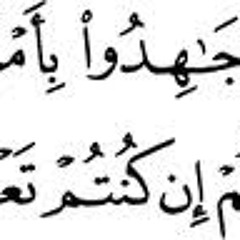 جَٰهِدُوا۟ بِأَمْ
مْ إِن كُنتُمْ تَعْ